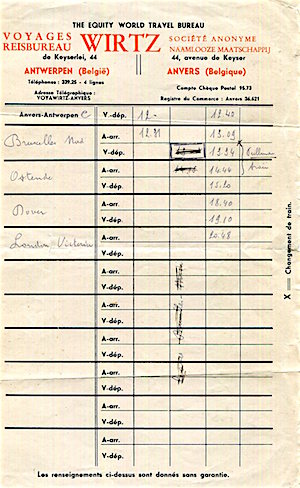 THE EQUITY WORLD TRAVEL BUREAU
VOYAGES WIRTZ SOCIÉTÉ ANONYME
REISBUREAU NAAMLOOZE MAATSCHAPPIJ
de Keyserlei, 44 44, avenue de Keyser
ANTWERPEN (België) ANVERS (Belgique)
Téléphones : 339,25 - 4 lignes Compte Chèque Postal 95.73
Adresse Télégraphique :
VOYAWIRTZ-ANVERS Registre du Commerce : Anvers 36.621
Anvers-Antwerpen C V-dép. 12.- 12.40
Bruxelles Nord A-arr. 12.31 13.09 X
V-dép. 13.24
Ostende A-arr. 14.44
V-dép. 15.20
Dover A-arr. 18.40
V-dép. 19.10
London Victoria A-arr. 20.48
V-dép.
A-arr.
V-dép.
A-arr.
V-dép.
A-arr.
V-dép.
A-arr.
V-dép.
A-arr.
V-dép.
A-arr.
V-dép.
X = Changement de train.
Les renseignements ci-dessus sont donnés sans garantie.